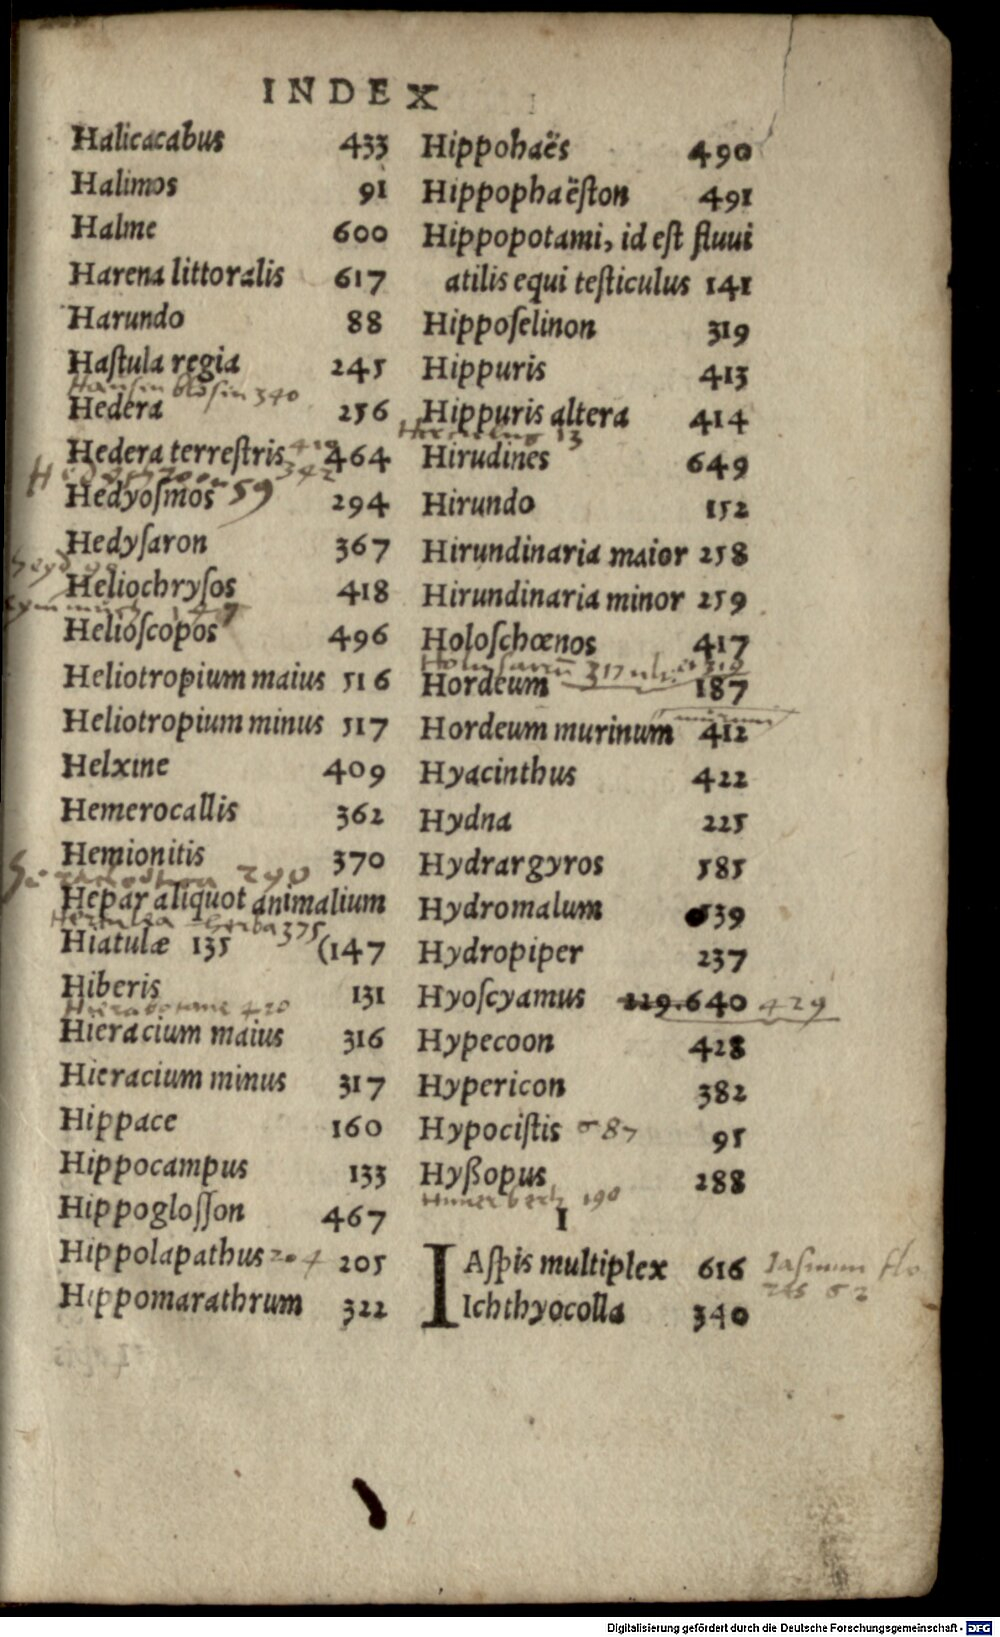 INDEX
Halicacabus 433
Halimos 91
Halme 600
Harena littoralis 617
Harundo 88
Haſtula regia 245
340
Hedera 256
Hedera terreſtris 464
342
Hedyoſmos 59 294
Hedyſaron 367
Heliochryſos 418
Helioſcopos 496
Heliotropium maius 516
Heliotropium minus 517
Helxine 409
Hemerocallis 362
Hemionitis 370
290
Hepar aliquot animalium
herba 375
Hiatulæ 135 (147
Hiberis 131
420
Hieracium maius 316
Hieracium minus 317
Hippace 160
Hippocampus 133
Hippogloſſon 467
Hippolapathus 204 205
Hippomarathrum 322
Hippohaës 490
Hippophaëſton 491
Hippopotami, id eſt fluui
atilis equi teſticulus 141
Hippoſelinon 319
Hippuris 413
Hippuris altera 414
13
Hirudines 649
Hirundo 152
Hirundinaria maior 258
Hirundinaria minor 259
Holoſchœnos 417
317
Hordeum 187
Hordeum murinum 412
Hyacinthus 422
Hydna 225
Hydrargyros 585
Hydromalum 539
Hydropiper 237
Hyoſcyamus 229.640 429
Hypecoon 428
Hypericon 382
Hypociſtis 87 95
Hyßopus 288
190
I
IAſpis multiplex 616
Ichthyocolla 340
Digitalisierung gefördert durch die Deutsche Forschungsgemeinschaft - DFG